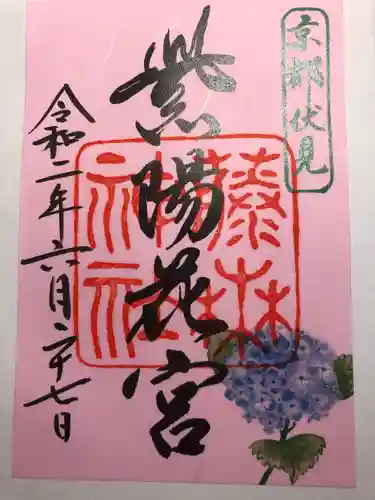 京都伏見
紫陽花宮
藤森神社
令和二年六月二十七日